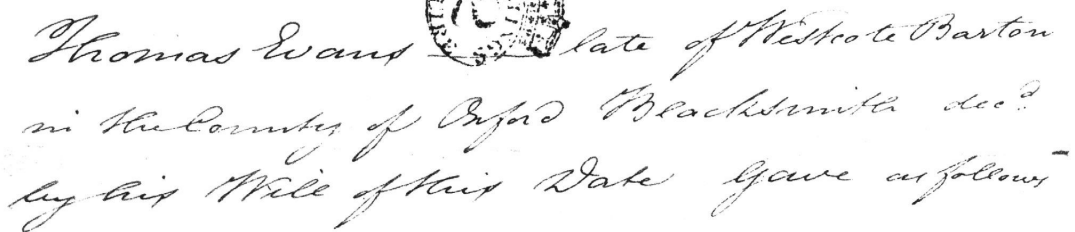 Thomas Evans late of Westcote Barton
in the County of Oxford Blacksmith decd.
by his Will of this Date Gave as follows